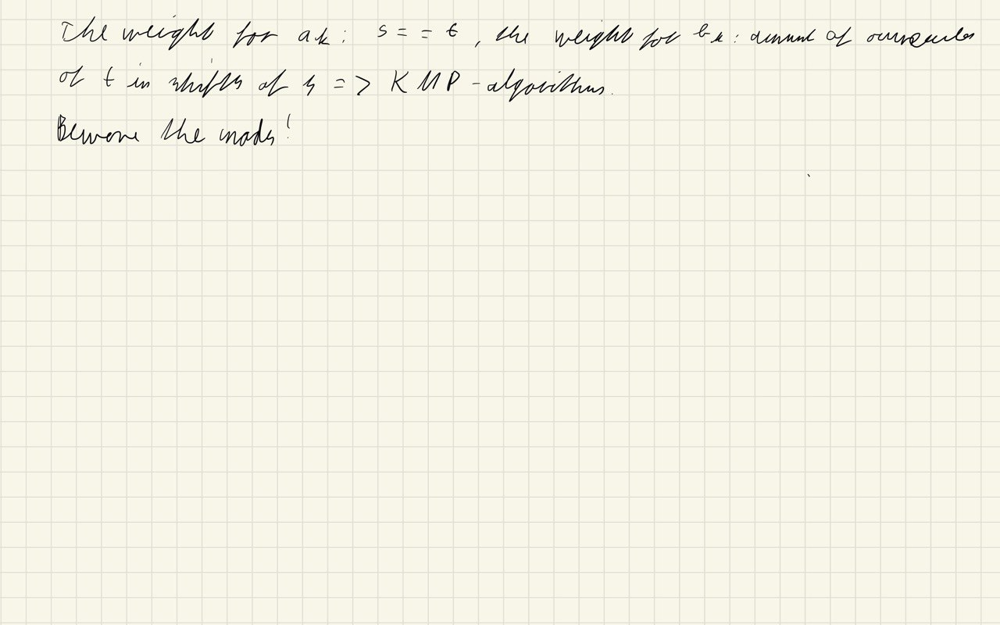 The weight for ak: s == t, the weight for bk: amount of occurences
of t in shifts of s => KMP-algorithms.
Beware the mods!